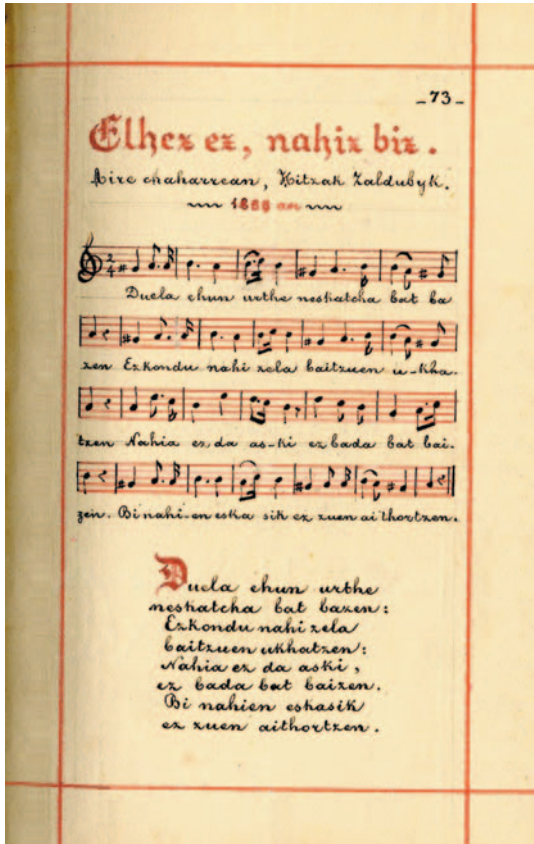 -73-
Elhez ez, nahiz biz.
Aire chaharrean, Hitzak Zaldubyk.
1888 an
2/4
Duela ehun urthe neskatcha bat ba
zen Ezkondu nahi zela baitzuen u-kha-
tzen Nahia ez da as-ki ez bada bat bai-
zen. Bi nahi-en eska sik ez zuen ai thortzen.
Duela ehun urthe
neskatcha bat bazen:
Ezkondu nahi zela
baitzuen ukhatzen:
Nahia ez da aski,
ez bada bat baizen.
Bi nahien eskasik
ez zuen aithortzen.